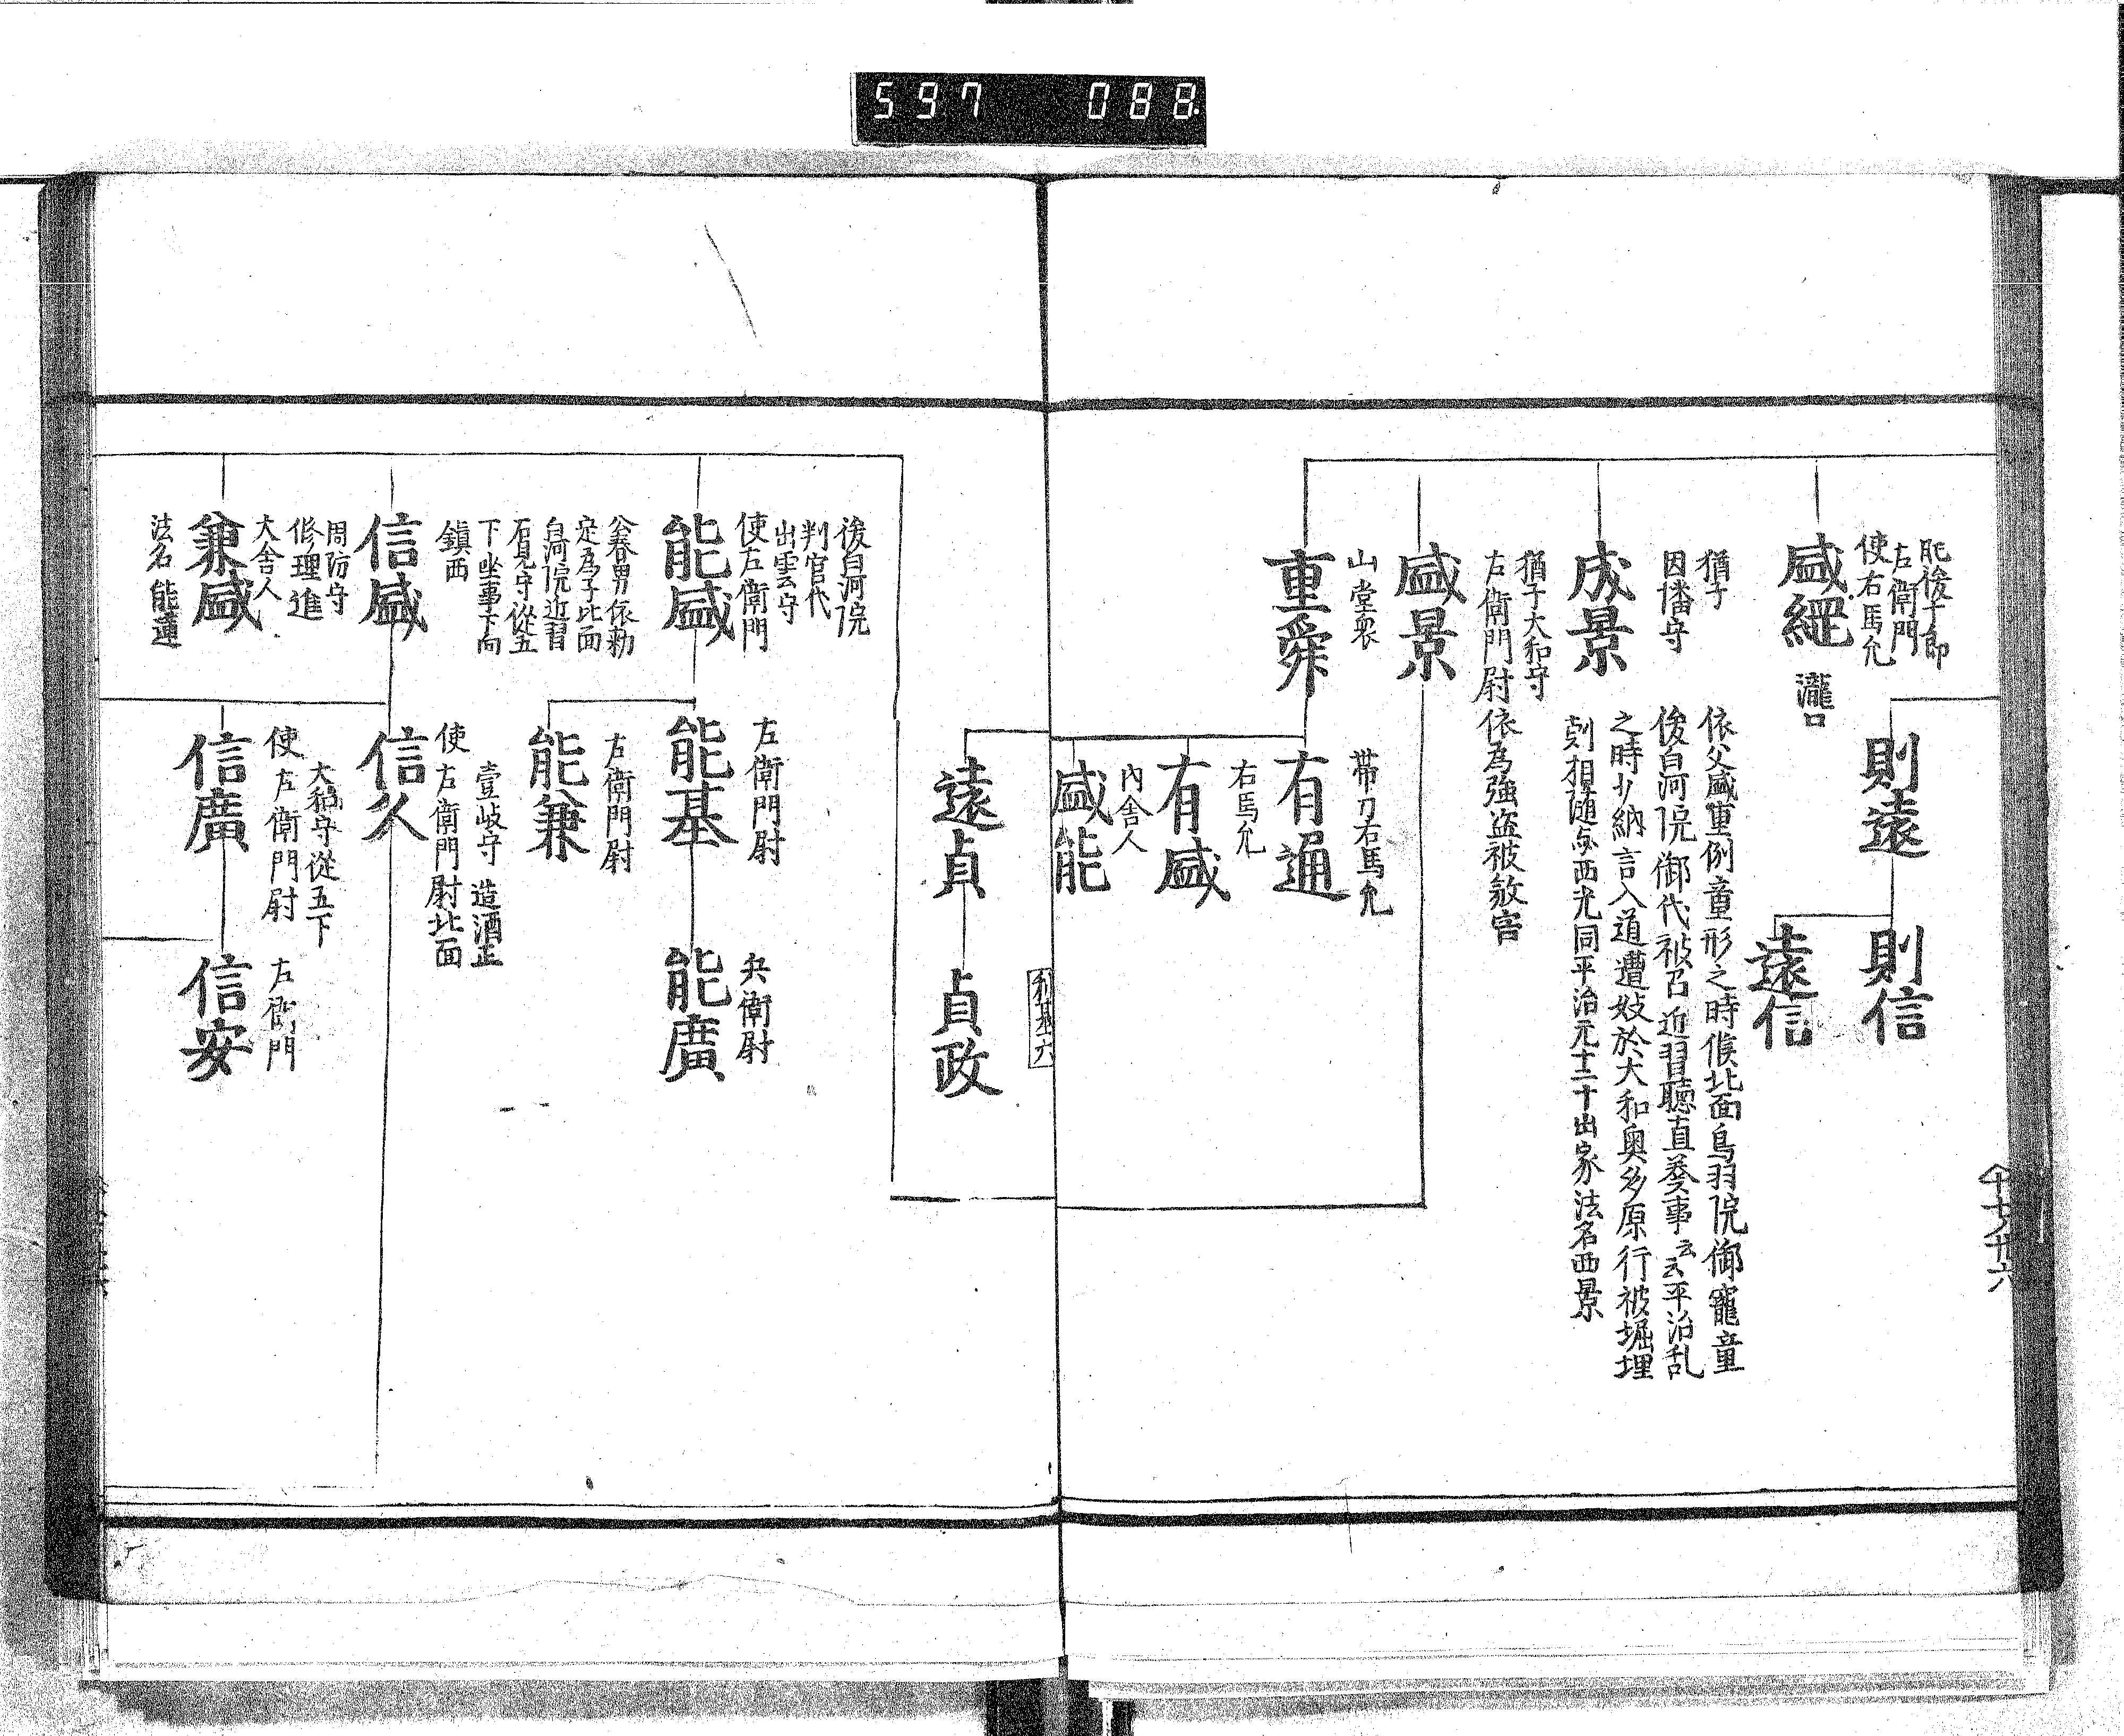 597 088
肥後守 即
左衛門
使右馬允
盛經
瀧口
則遠
則信
遠信
猶子
因幡守
成景
依父盛重例童形之時候北面鳥羽院御寵童
後白河院御代被召近習聽直奏事云云平治乱
之時少納言入道遭妓於大和奥多原行被堀埋
剋相随与西光同平治元十二十出家法名西景
猶子大和守
左衛門尉依為強盗被敘害
盛景
山堂衆
重舜
帯刀右馬允
有通
右馬允
有盛
内舎人
盛能
利基六
遠貞
貞政
後白河院
判官代
出雲守
使左衛門
能盛
左衛門尉
能基
兵衛尉
能廣
左衛門尉
能兼
公春男依勅
定為子北面
白河院近習
石見守從五
下坐事下向
鎮西
信盛
壹岐守 造酒正
使左衛門尉北面
信久
大和守從五下
使左衛門尉
信廣
左衛門
信安
周防守
修理進
大舎人
兼盛
法名能蓮